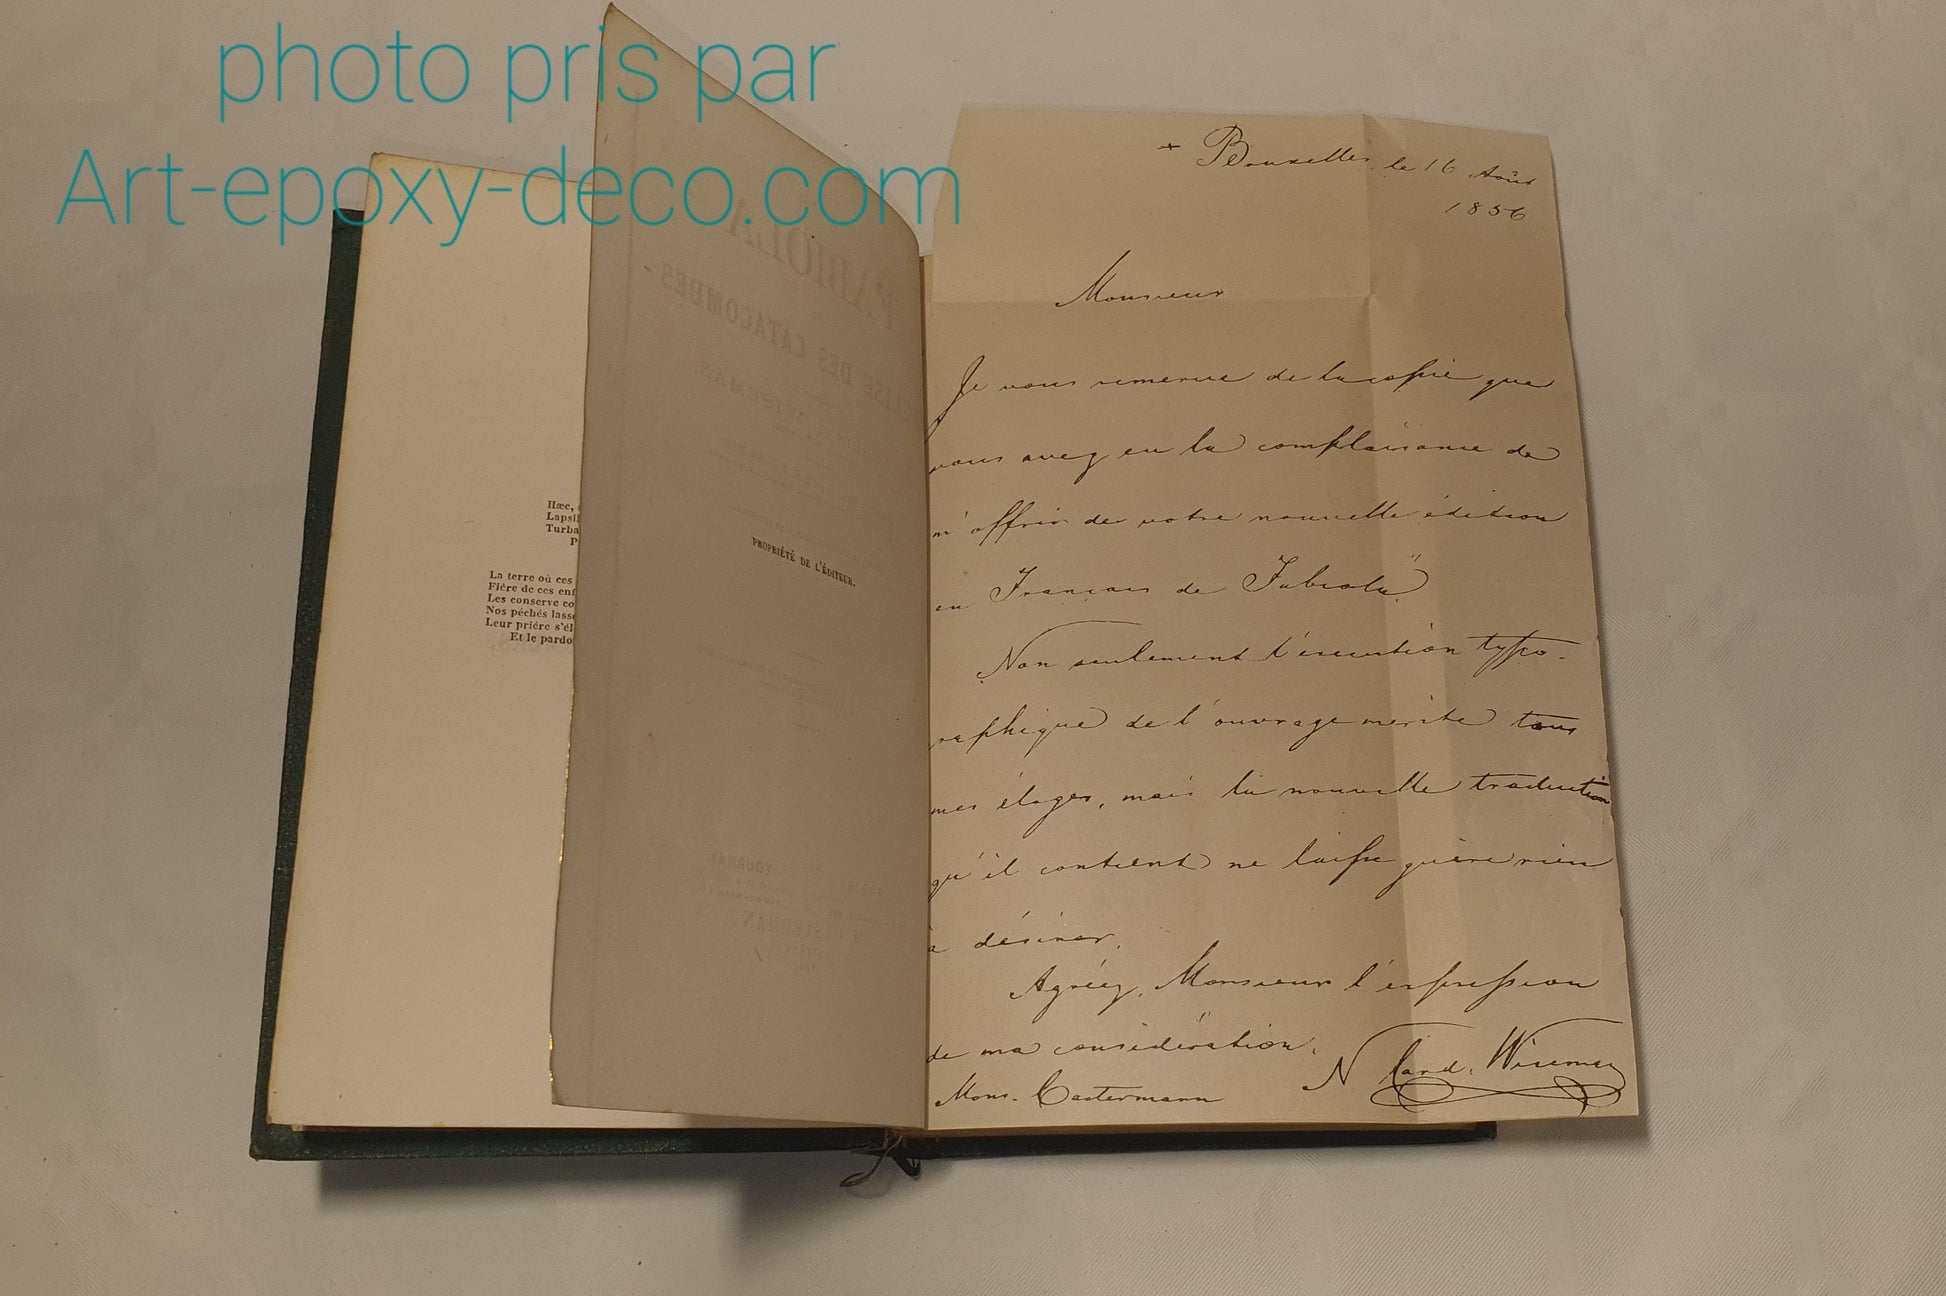 photo pris par
Art-epoxy-deco.com
Hæc,
Lapsi
Turba
P
La terre où ces
Fière de ces enf
Les conserve co
Nos péchés lass
Leur prière s'él
Et le pardo
FABIOLA
ÉGLISE DES CATACOMBES
WISEMAN,
PROPRIÉTÉ DE L'ÉDITEUR.
PARIS
TOURNAI
CASTERMAN
+ Bruxelles, le 16 Août
1856
Monsieur
Je vous remercie de la copie que
vous avez eu la complaisance de
m'offrir de votre nouvelle édition
en Français de "Fabiola".
Non seulement l'éxecution typo-
raphique de l'ouvrage merite tous
mes éloges, mais la nouvelle traduction
qu'il contient ne laisse guère rien
à désirer.
Agréez, Monsieur l'expression
de ma considération.
N Card. Wiseman
Mons. Castermann